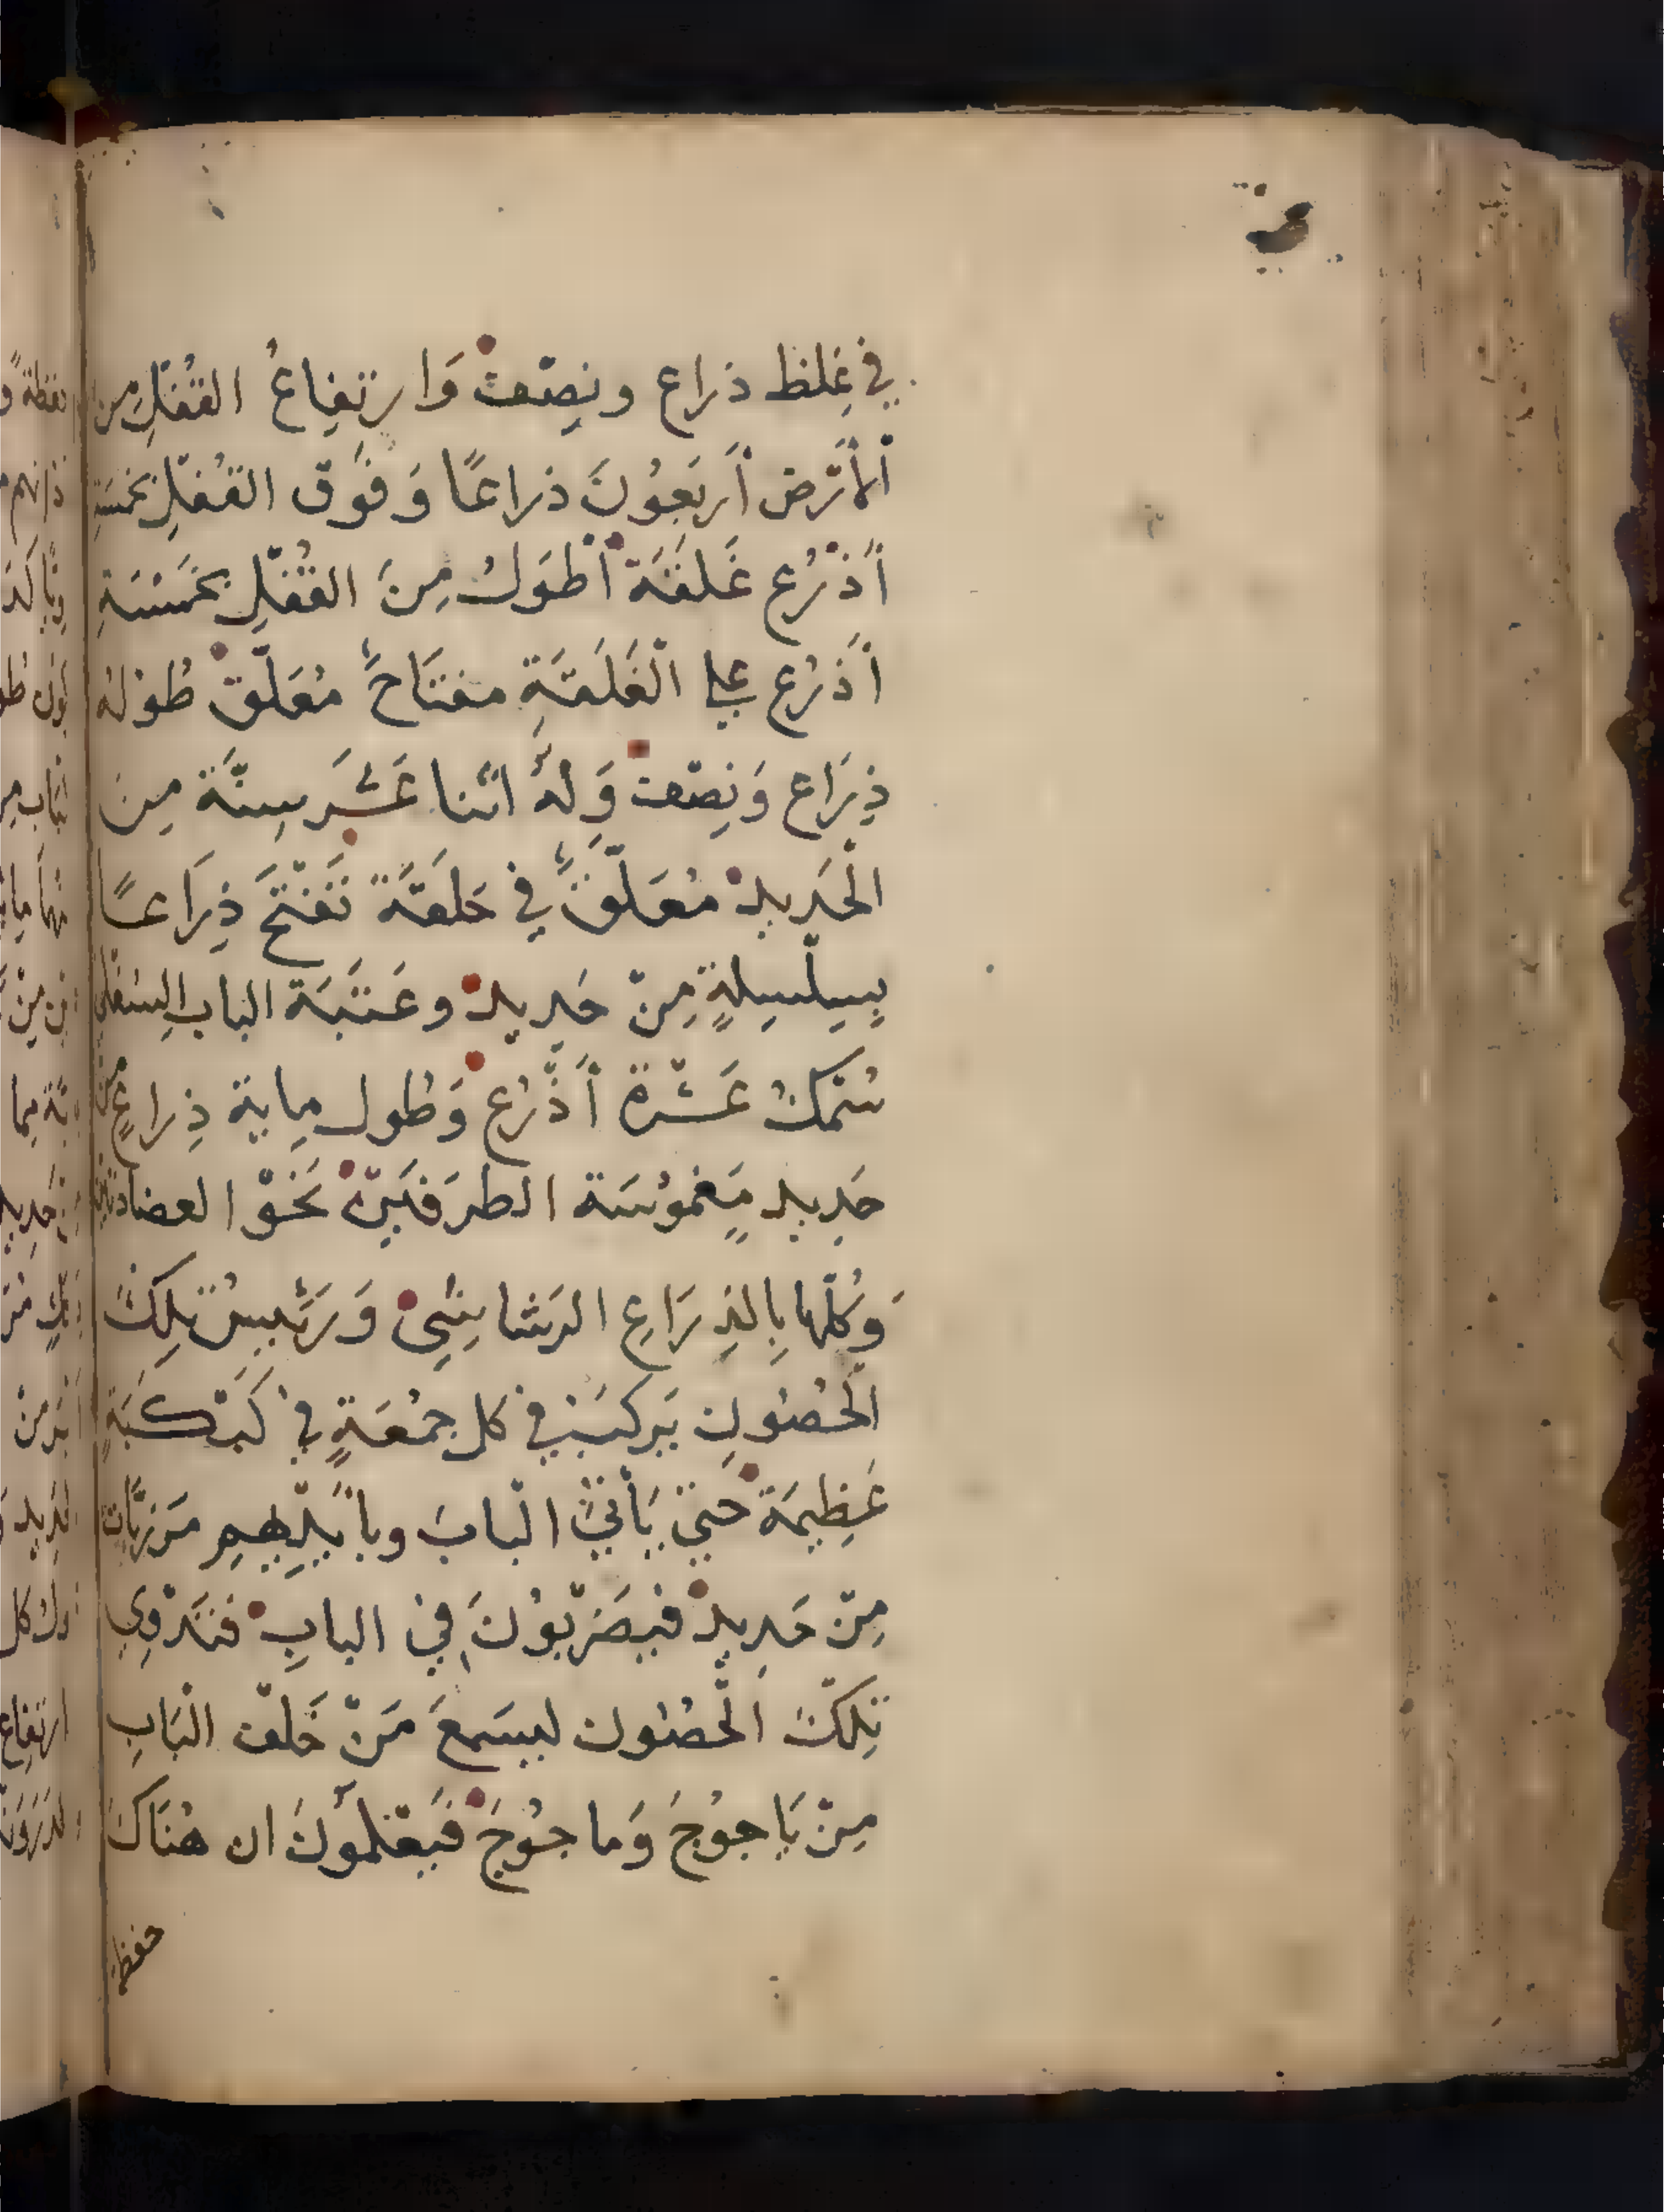 في غِلظ ذراع ونِصْفْ وَارتفِاعُ القفْلِ من
ألأَرْض أَربَعُونَ ذراعًا وَفَوْق القُفْلِ بخَمسَةِ
أَذْرُع غَلَقَة أَطْوَلُ مِنَ القُفْلِ بخَمْسَةِ
أَذرُع على الْغَلَقَةِ مفتَاحٌ مُعَلَّقْ طُولهُ
ذِرَاع وَنِصْفْ وَلهُ اثنا عَشَر سِنَّة مِنَ
الْحَدِيدْ مُعَلَّقٌ في حَلقَةً تَفْتَحَ ذِرَاعًا
بِسِلْسِلةٍ مِنْ حَدِيدْ وعَتَبَة الباب السفلى
سُمْكُ عَشْرة أَذْرُع وَطُول ماية ذِراعٍ من
حَدِيد مَغموُسَة الطرَفَيْنْ نَحْوَ العضادتين
وَكُلّها بِالذِرَاعِ الرَشاشيْ وَرَئِيسُ تلِكَ
الْحُصُونِ يَركَبُ في كل جمُعَةٍ في كَبْكَبَةٍ
عَظِيمَة حَتىَّ يَأْتِيَ الْبابَ وبأَيْدِيهِم مَرْزبَّات
مِنْ حَدِيدْ فيَضرْبوُنَ في البابِ فتَدْوِي
تِلكَ الْحُصُون ليسَمعَ مَنْ خَلفَ الْبَابِ
مِنْ يَاجوُجَ وَماجوُجَ فَيَعْلَمُونَ ان هُنَاكَ
حفظه